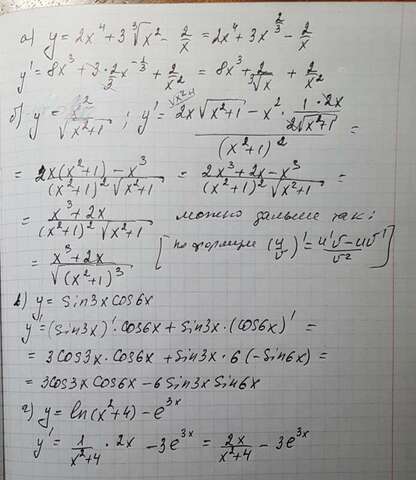 а) y = 2x⁴ + 3∛x² - 2/x = 2x⁴ + 3x^(2/3) - 2/x
y' = 8x³ + 3·2/3 x^(-1/3) + 2/x² = 8x³ + 2/∛x + 2/x²
б) y = x²/√(x²+1) ; y' = (2x√(x²+1) - x²·(1·2x)/(2√(x²+1)))/(x²+1)² =
= (2x(x²+1) - x³)/((x²+1)²√(x²+1)) = (2x³+2x-x³)/((x²+1)²√(x²+1)) =
= (x³+2x)/((x²+1)²√(x²+1)) можно дальше так:
= (x³+2x)/√(x²+1)³ [по формуле (u/v)' = (u'v-uv')/v²]
в) y = sin3x cos6x
y' = (sin3x)'·cos6x + sin3x·(cos6x)' =
= 3cos3x·cos6x + sin3x·6(-sin6x) =
= 3cos3x cos6x - 6sin3x sin6x
г) y = ln(x²+4) - e^(3x)
y' = 1/(x²+4) · 2x - 3e^(3x) = 2x/(x²+4) - 3e^(3x)